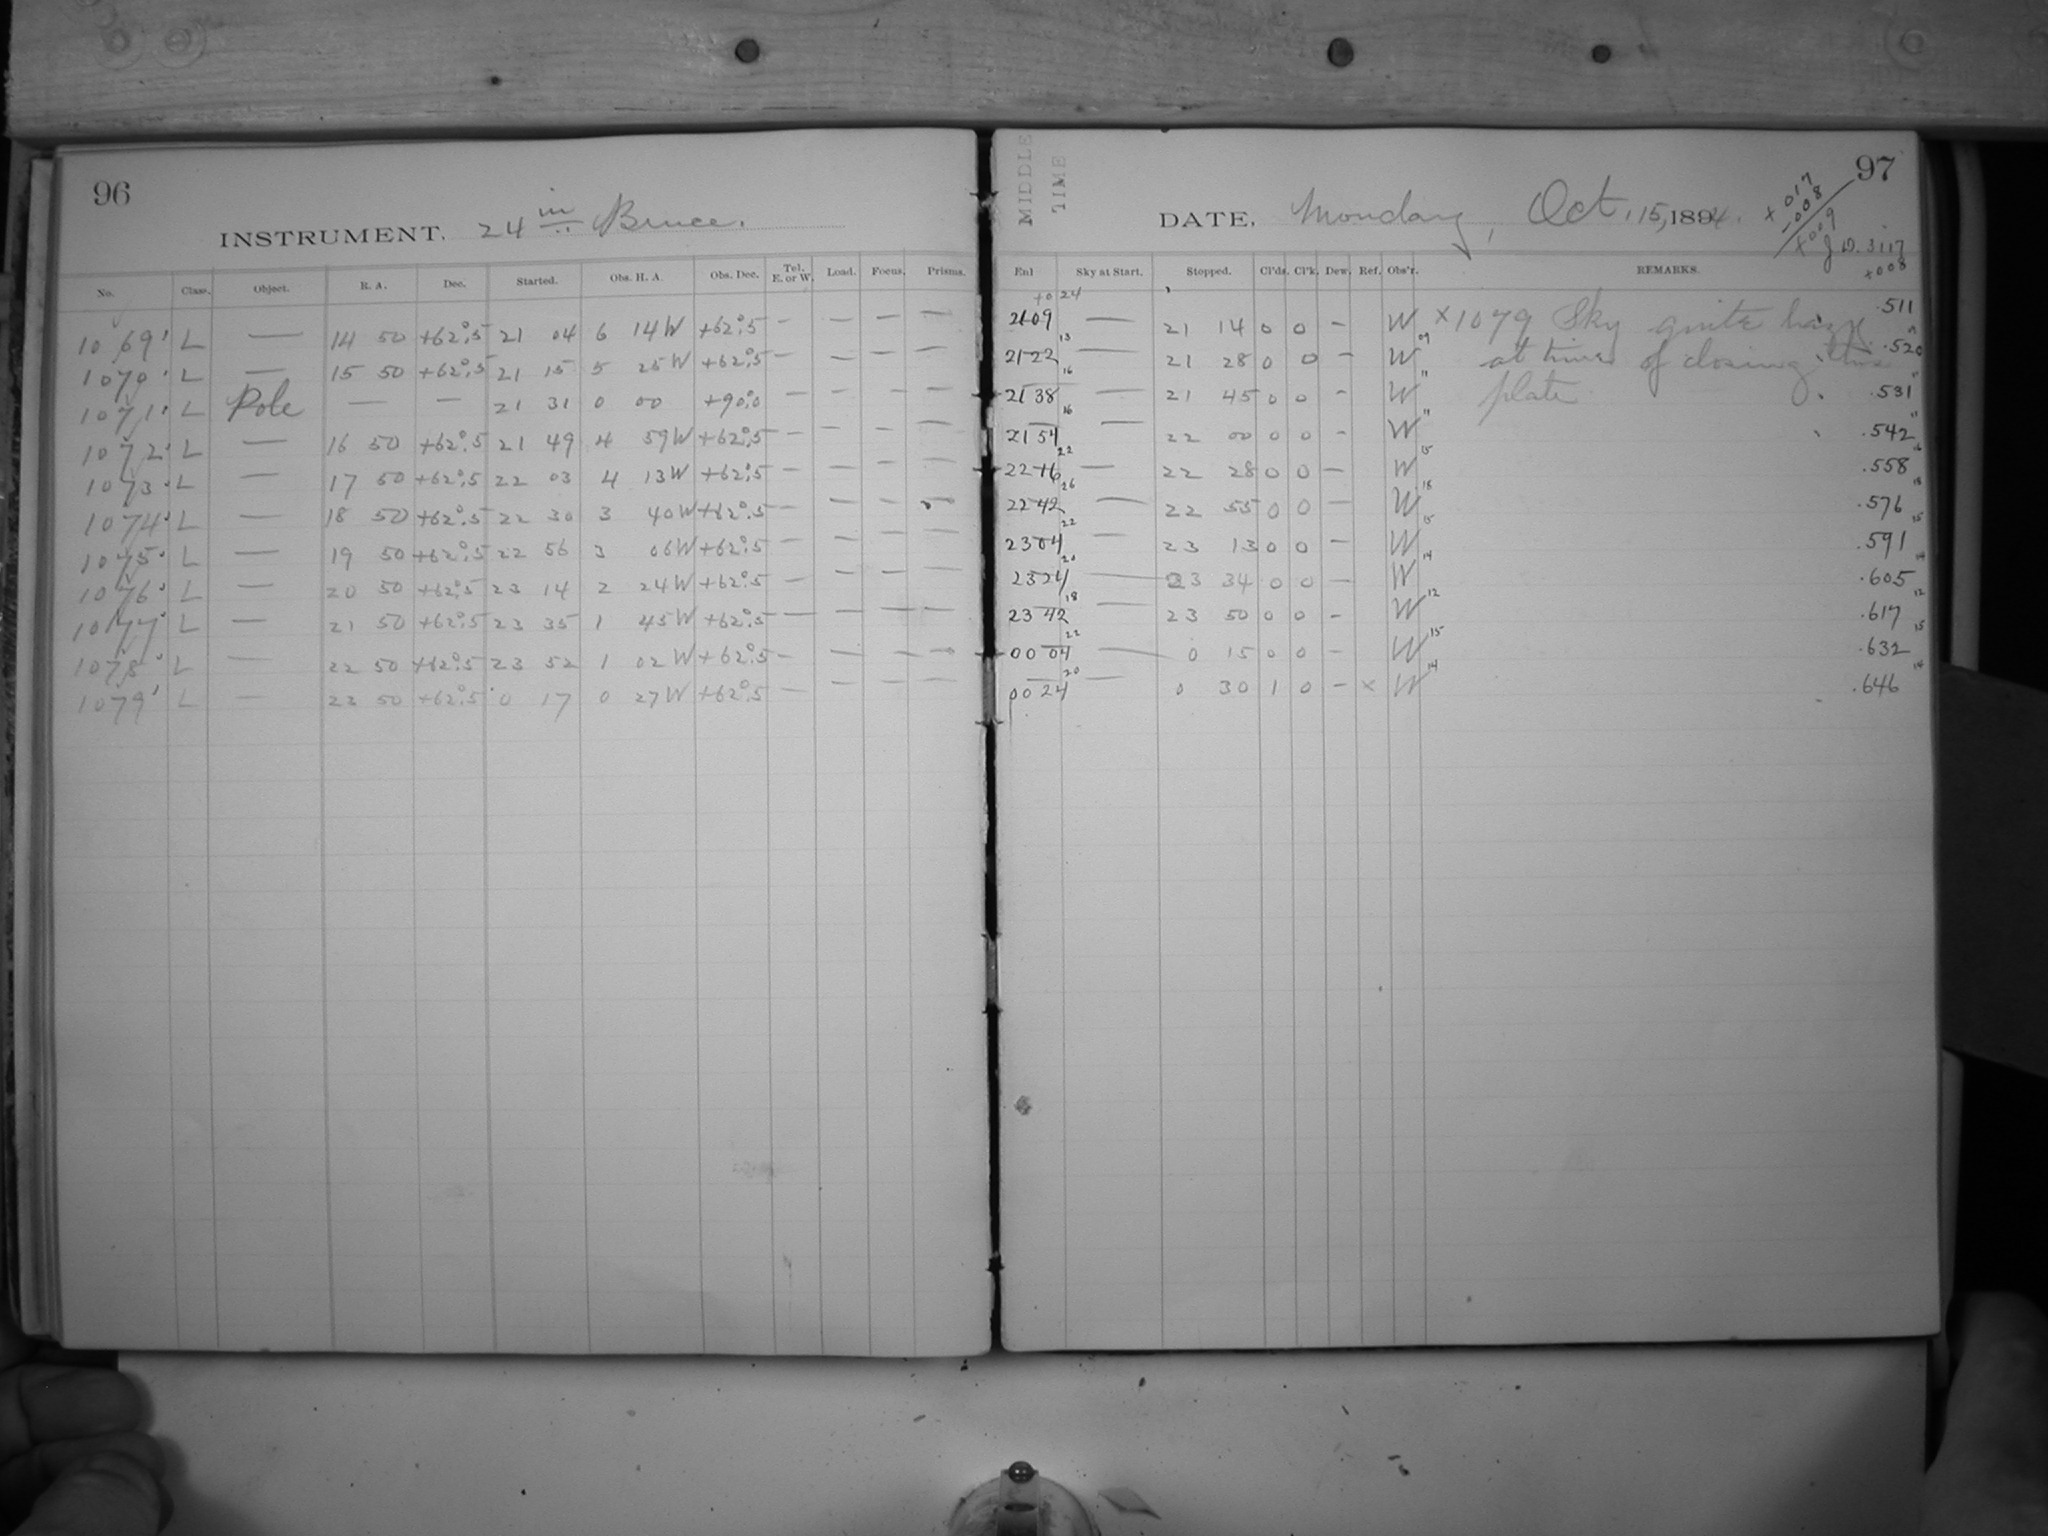 96
INSTRUMENT. 24 in Bruce.
No. Class. Object. R. A. Dec. Started. Obs. H. A. Obs. Dec. Tel. E. or W. Load. Focus. Prisms.
1069 L — 14 50 +62°.5 21 04 6 14 W +62°.5 — — — —
1070 L — 15 50 +62°.5 21 15 5 25 W +62°.5 — — — —
1071 L Pole — — 21 31 0 00 +90°.0 — — —
1072 L — 16 50 +62°.5 21 49 4 59 W +62°.5 — — — —
1073 L — 17 50 +62°.5 22 03 4 13 W +62°.5 — — — —
1074 L — 18 50 +62°.5 22 30 3 40 W +62°.5 — — — —
1075 L — 19 50 +62°.5 22 56 3 06 W +62°.5 — — — —
1076 L — 20 50 +62°.5 23 14 2 24 W +62°.5 — — — —
1077 L — 21 50 +62°.5 23 35 1 45 W +62°.5 — — — —
1078 L — 22 50 +62°.5 23 52 1 02 W +62°.5 — — — —
1079 L — 23 50 +62°.5 0 17 0 27 W +62°.5 — — — —
MIDDLE TIME
97
DATE. Monday, Oct. 15, 1894.
+017
-008
+009
J.D. 3117
+008
Sky at Start. Stopped. Cl'ds. Cl'k. Dew. Ref. Obs'r. REMARKS.
+0 24
2109 — 21 14 0 0 — W ×1079 Sky quite hazy .511
13 09
2122 — 21 28 0 0 — W at time of closing this .520
16 11
2138 — 21 45 0 0 — W plate .531
16 11
2154 — 22 00 0 0 — W .542
22 15
2216 — 22 28 0 0 — W .558
26 18
2242 — 22 55 0 0 — W .576
22 15
2304 — 23 13 0 0 — W .591
20 14
2324 — 23 34 0 0 — W .605
18 12
2342 — 23 50 0 0 — W .617
22 15
0004 — 0 15 0 0 — W .632
20 14
0024 — 0 30 1 0 — × W .646